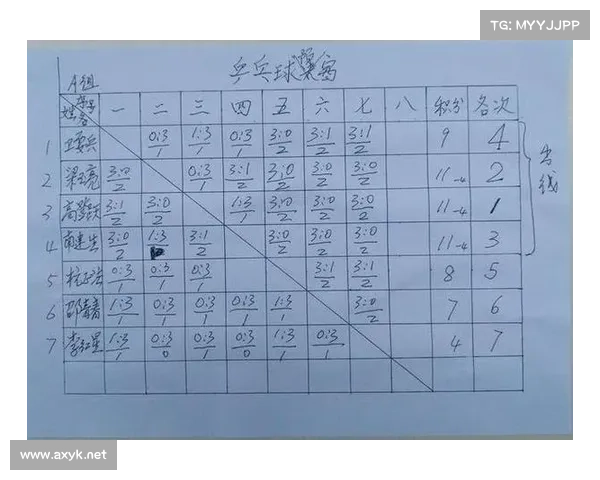 TG: MYYJJPP
乒乓球
A组
姓名 一 二 三 四 五 六 七 八 积分 名次
1 0:3/1 1:3/1 0:3/1 3:0/2 3:1/2 3:1/2 9 4
2 梁亮 3:0/2 0:3/1 3:1/2 3:0/2 3:0/2 3:0/2 11-4 2
3 3:1/2 3:0/2 1:3/1 3:0/2 3:0/2 3:0/2 11-4 1
4 3:0/2 1:3 3:1/2 3:0/2 3:0/2 3:0/2 11-4 3
5 0:3/1 0:3/1 0:3/1 3:1/2 3:1/2 8 5
6 1:3/1 0:3/1 0:3/1 0:3/1 1:3/1 3:0/2 7 6
7 李红星 1:3/1 0:3/0 0:3/1 0:3/0 1:3/1 0:3/1 4 7
出线
www.axyk.net